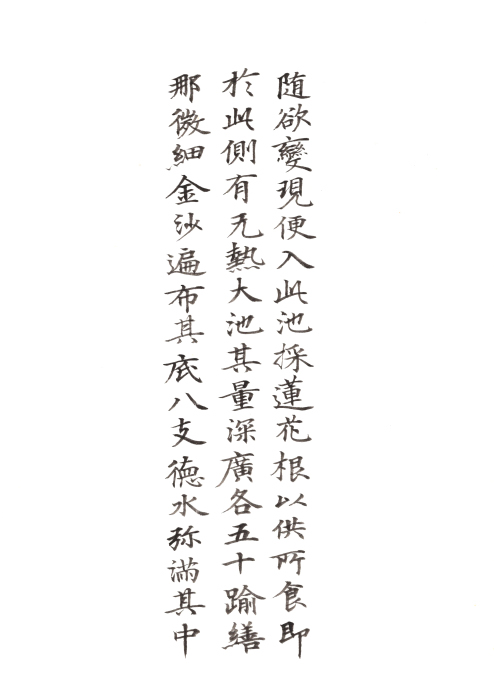 随欲變現便入此池採蓮花根以供所食即
於此側有无熱大池其量深廣各五十踰繕
那微細金沙遍布其底八支德水弥満其中